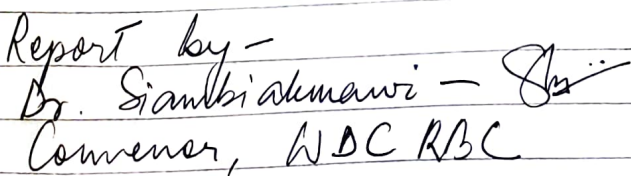 Report by -
Dr. Siambiakmawi -
Convenor, WDC RBC